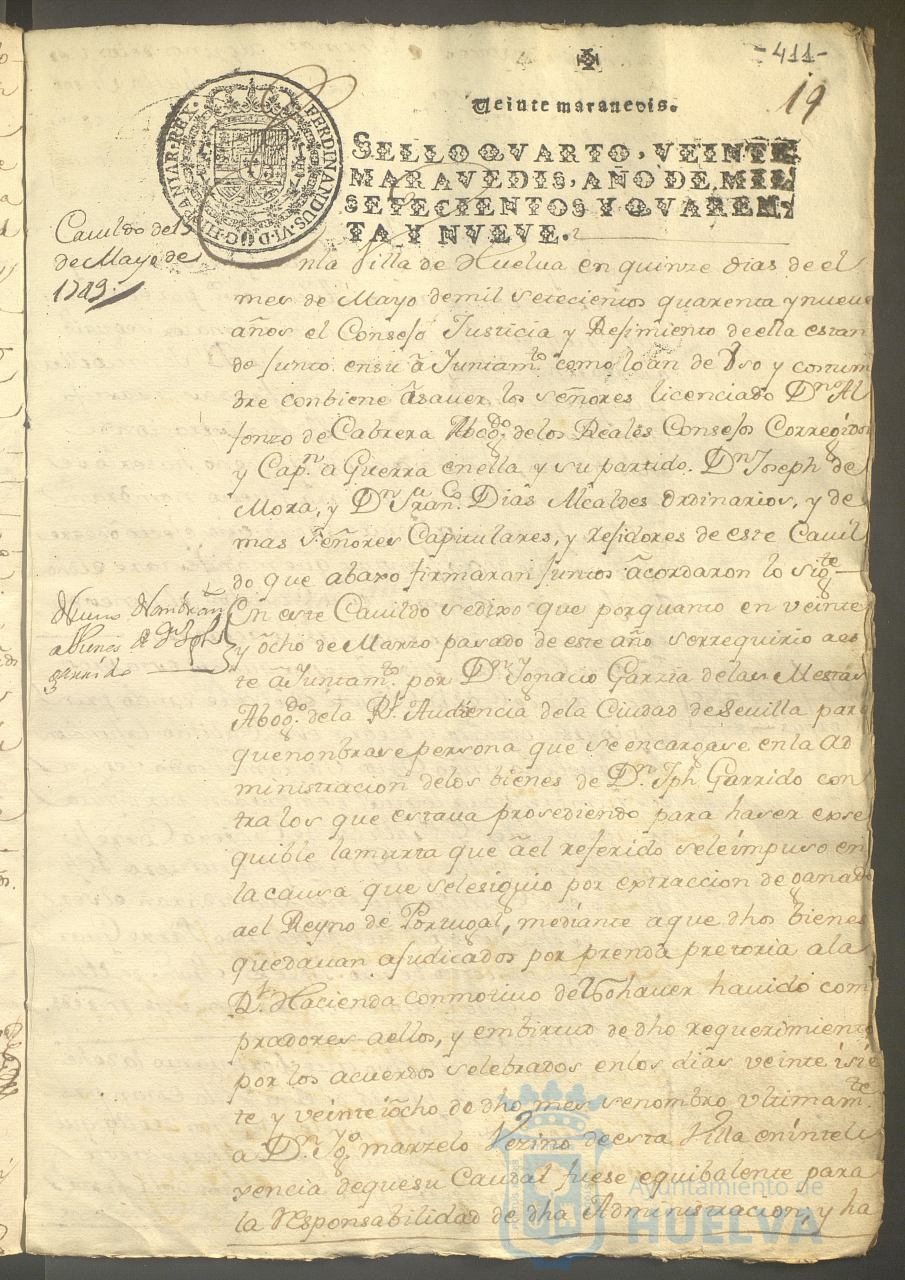 -411-
19
Veinte maravedis.
SELLO QVARTO, VEINTE
MARAVEDIS, AÑO DE MIL
SETECIENTOS Y QVAREN-
TA Y NVEVE.
FERDINANDUS.VI.D.G.HISPANIAR.REX.
Cauildo del 
de Mayo de
1749.
nla Villa de Huelua en quinze dias de el
mes de Mayo de mil setecientos quarenta y nueue
años el Consejo Justicia y Rejimiento de ella estan
do junto en su aJuntamto. como lo an de Vso y costum
bre conbiene asauer los señores licenciado Dn. Al
fonzo de Cabrera Abogdo. delos Reales Consejos Corregidor
y Capn. a Guerra en ella y su partido. Dn. Joseph de
Mora, y Dn. Franco. Dias Alcaldes ordinarios, y de
mas señores Capitulares, y rejidores de este Cauil
do que abaxo firmaran juntos acordaron lo sigte.
En este Cauildo sedixo que porquanto en veinte
y ocho de Marzo pasado de este año serrequirio aes
te aJuntamto. por Dn. Ignacio Garzia delas Mestas
Abogdo. dela Rl. Audiencia dela Ciudad de Sevilla para
quenonbrase persona que se encargase en la ad
ministracion delos bienes de Dn. Jph Garrido con
tra los que estava prosediendo para haser exse
quible lamurta que a el referido sele impuso en
la causa que selesiguio por extraccion de ganado
ael Reyno de Portugal, mediante a que dhos bienes
quedauan ajudicados por prenda pretoria a la
Rl. Hacienda conmotiuo de no hauer hauido com
pradores aellos, y embirtud de dho requerimiento
por los acuerdos selebrados en los dias veinte isie
te y veinte iocho de dho mes senombro vltimamte.
a Dn. Jo. marzelo Vezino de esta Villa en inteli
xencia dequesu Caudal fuese equibalente para
la responsabilidad de dha Administracion, y ha
abienes de Dn. Jph
garrido
Ayuntamiento de
HUELVA